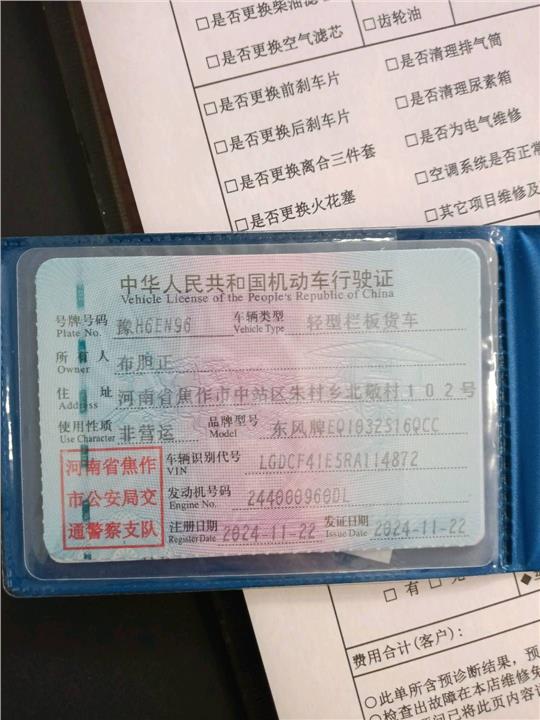 □是否更换柴油滤
□是否更换空气滤芯
□齿轮油
□是否更换前刹车片
□是否清理排气筒
□是否更换后刹车片
□是否清理尿素箱
□是否更换离合三件套
□是否为电气维修
□是否更换火花塞
□空调系统是否正常
□其它项目维修及
中华人民共和国机动车行驶证
Vehicle License of the People's Republic of China
号牌号码 豫H6EN96 车辆类型 轻型栏板货车
Plate No. Vehicle Type
所有人 布胆正
Owner
住址 河南省焦作市中站区朱村乡北敬村102号
Address
使用性质 非营运 品牌型号 东风牌EQ1032S16QCC
Use Character Model
河南省焦作
市公安局交
通警察支队
车辆识别代号 LGDCF41E5RA114872
VIN
发动机号码 244000960DL
Engine No.
注册日期 2024-11-22 发证日期 2024-11-22
Register Date Issue Date
□ 有 □
费用合计(客户):
○此单所含预诊断结果，预
○检查出故障在本店维修免
间已将此页内容详